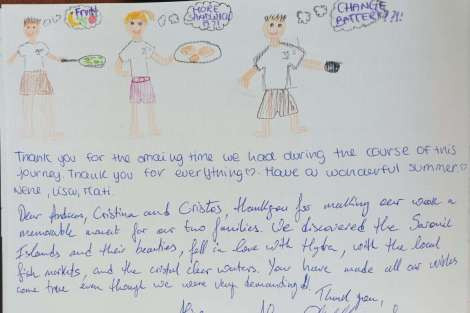 FRUIT
MORE
SANDWICH
?!
CHANGE
BATTERY?!!
Thank you for the amaing time we had during the course of this
journey. Thank you for everything♡. Have a wonderful summer♡
Nene, Lisa, Mati.
Dear Andreas, Cristina and Cristos, thank you for making our week a
memorable moment for our two families. We discovered the Saronic
Islands and their beauties, fell in love with Hydra, with the local
fish markets, and the cristal clear waters. You have made all our wishes
come true even though we were very demanding!
Thank you,